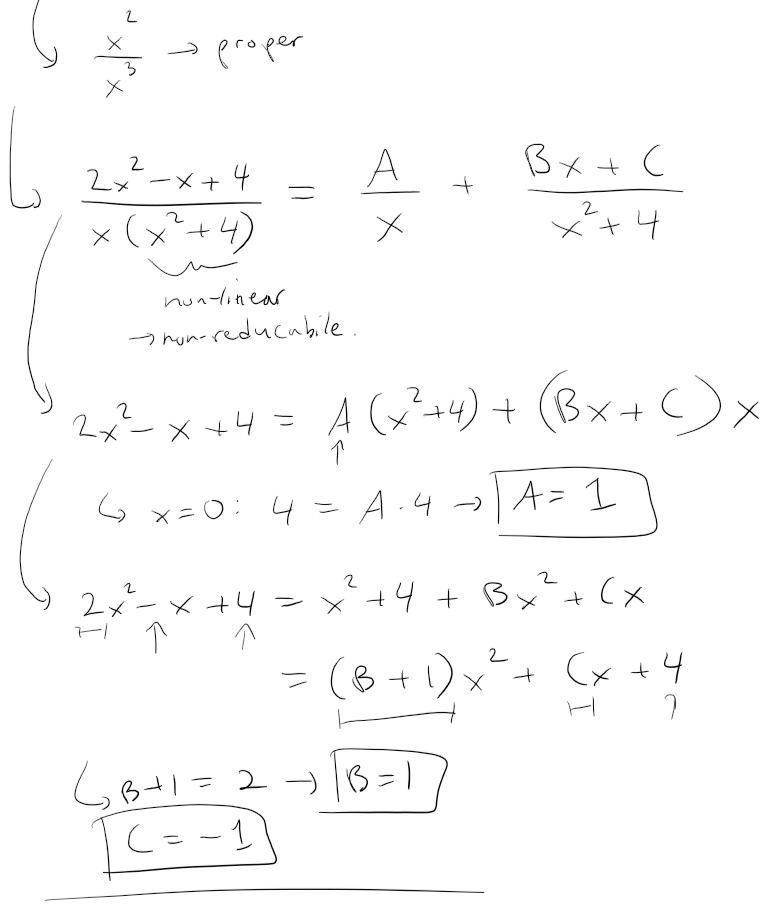 x²/x³ → proper
(2x² - x + 4)/(x(x² + 4)) = A/x + (Bx + C)/(x² + 4)
non-linear
→ non-reducabile.
2x² - x + 4 = A(x² + 4) + (Bx + C)x
↳ x = 0: 4 = A · 4 → A = 1
2x² - x + 4 = x² + 4 + Bx² + Cx
= (B + 1)x² + Cx + 4
↳ B + 1 = 2 → B = 1
C = -1